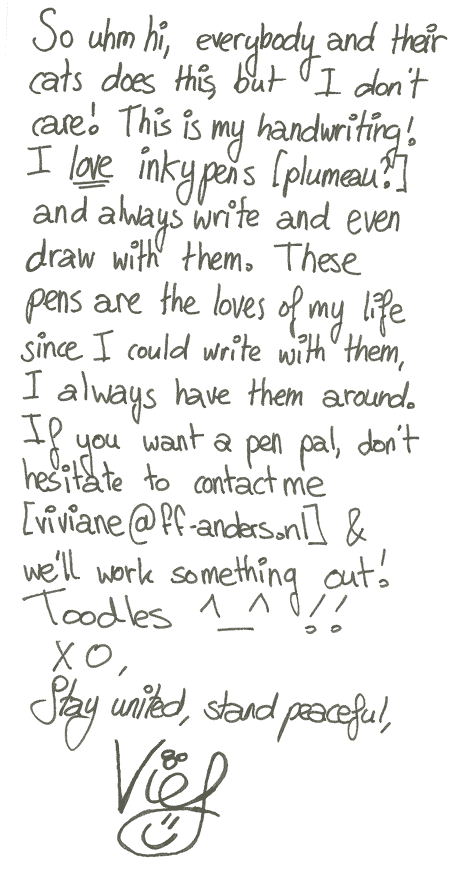 So uhm hi, everybody and their
cats does this, but I don't
care! This is my handwriting!
I love inky pens [plumeau?]
and always write and even
draw with them. These
pens are the loves of my life
since I could write with them,
I always have them around.
If you want a pen pal, don't
hesitate to contact me
[viviane@ff-anders.nl] &
we'll work something out!
Toodles ^_^ !!
XO,
Stay united, stand peaceful,
Vief